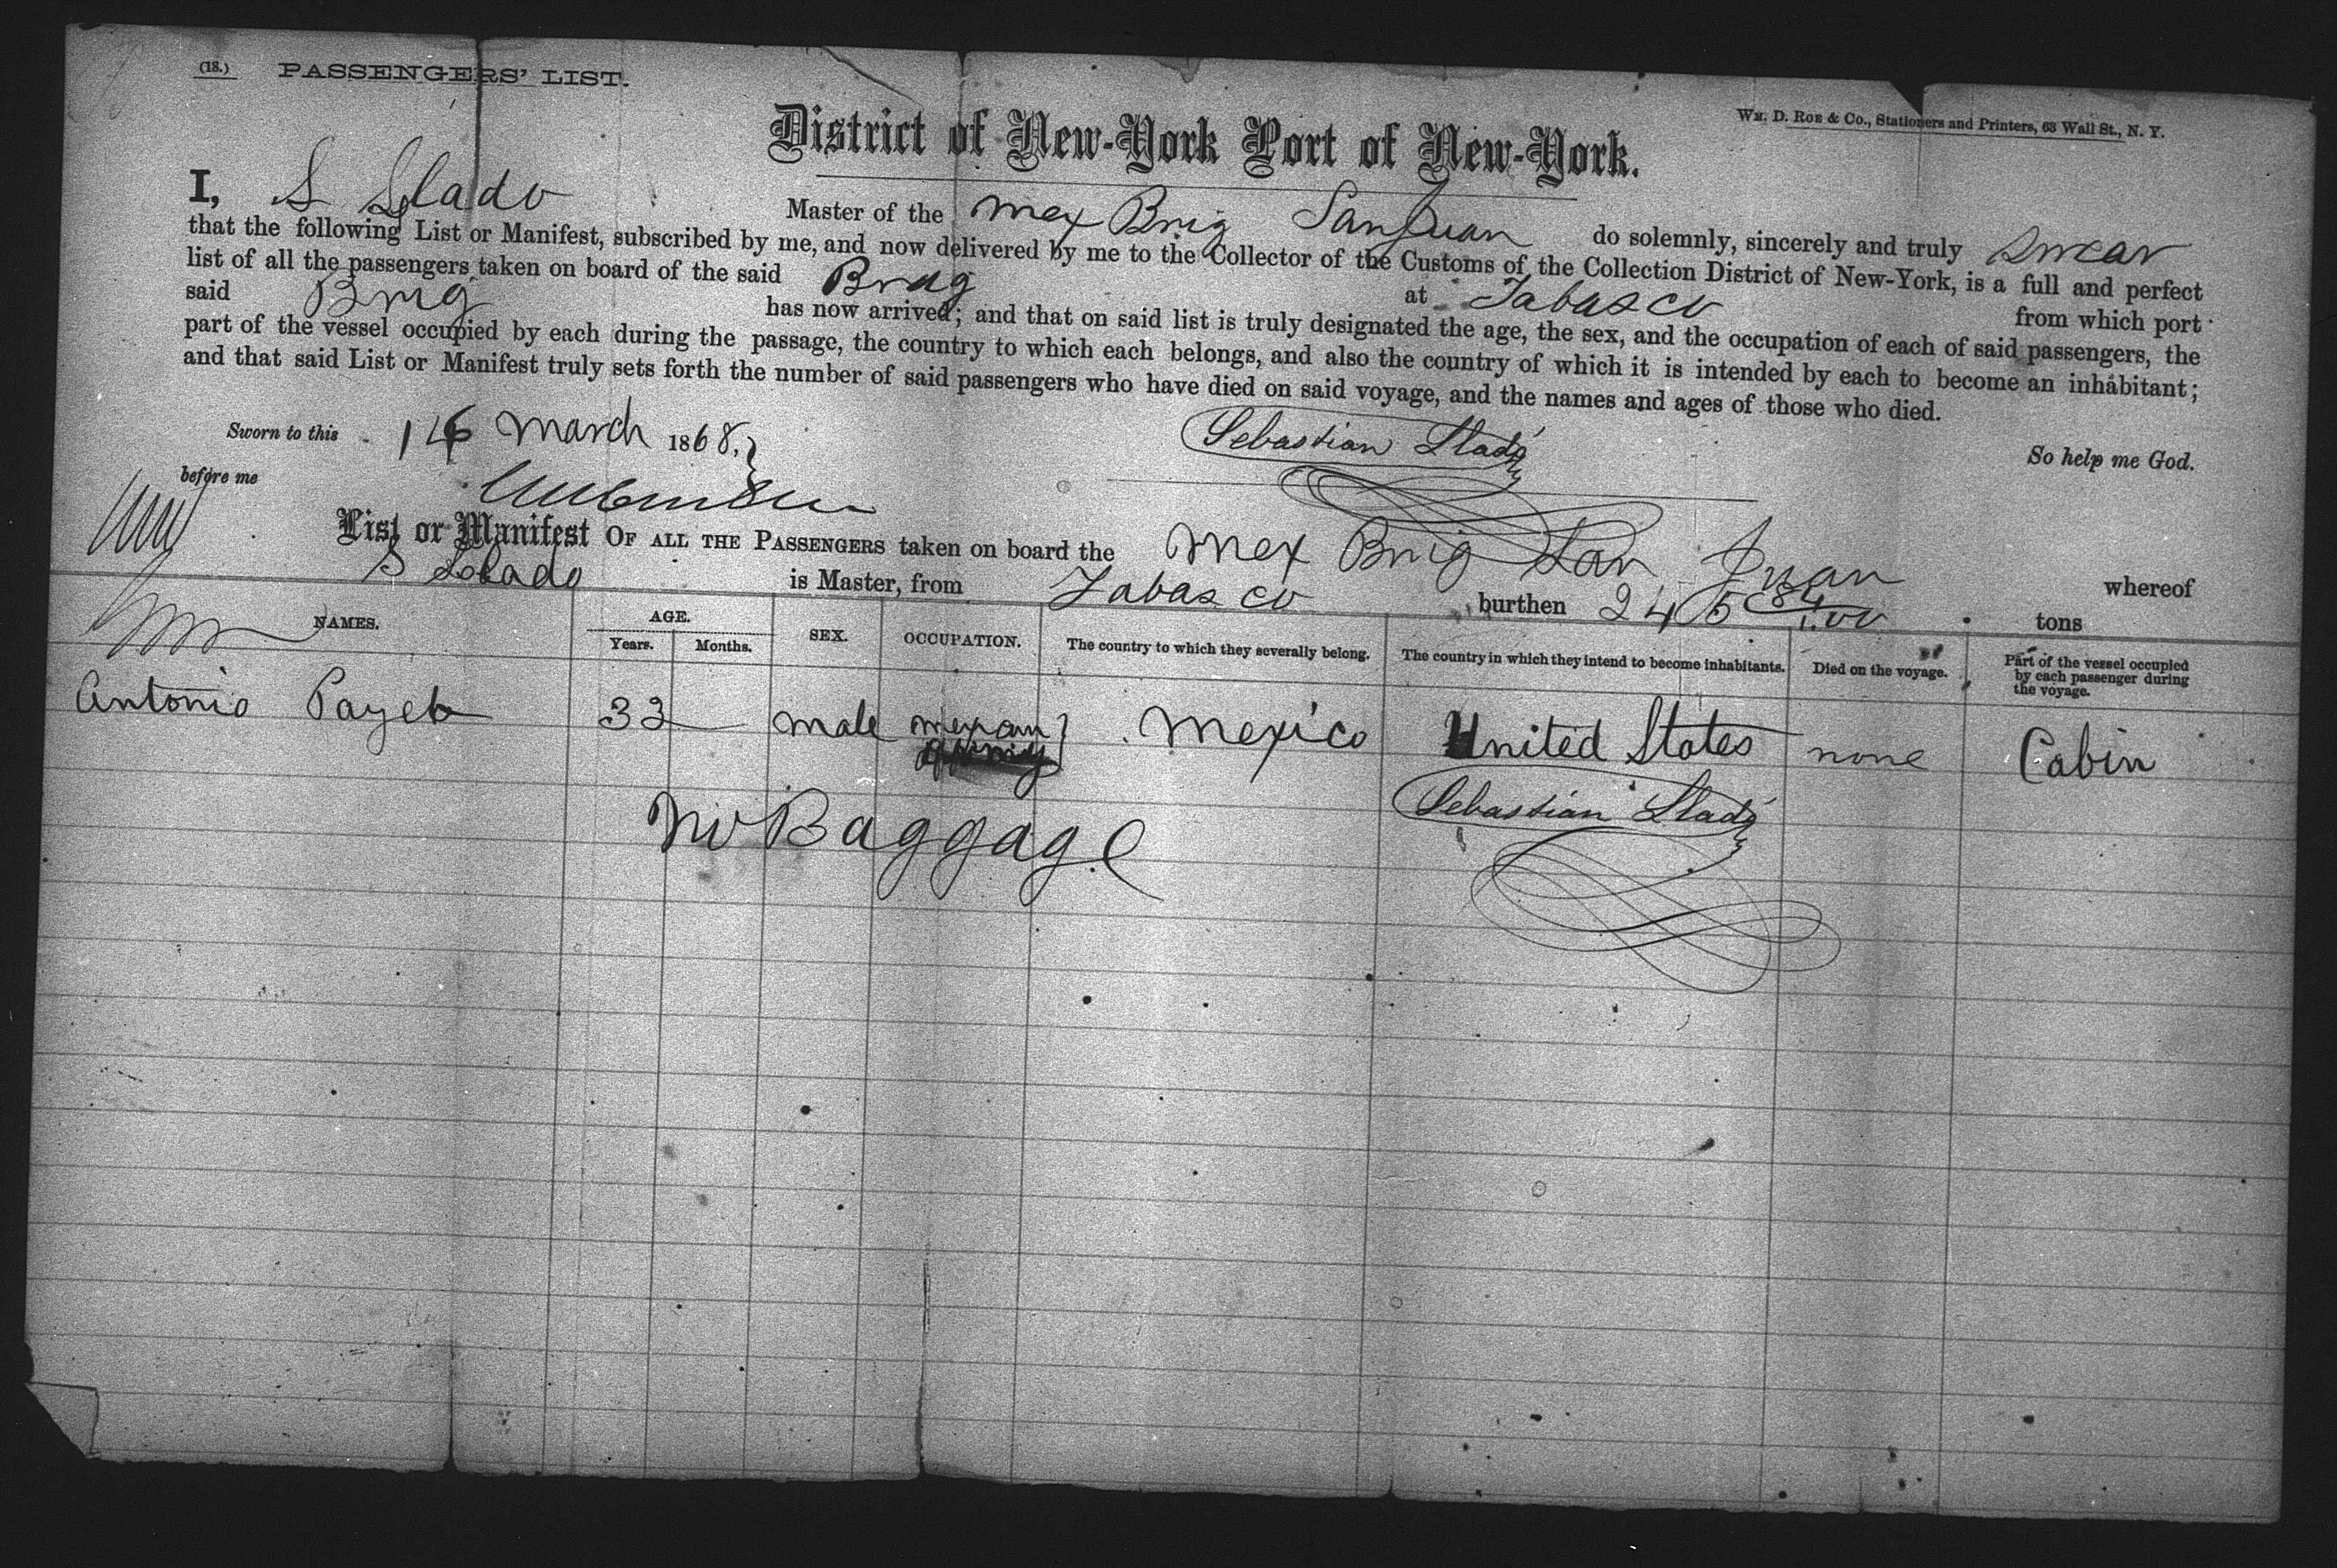 (18.) PASSENGERS' LIST.
Wm. D. Roe & Co., Stationers and Printers, 63 Wall St., N. Y.
District of New-York Port of New-York.
I, S Slado Master of the Mex Brig San Juan do solemnly, sincerely and truly swear
that the following List or Manifest, subscribed by me, and now delivered by me to the Collector of the Customs of the Collection District of New-York, is a full and perfect
list of all the passengers taken on board of the said Brig at Tabasco from which port
said Brig has now arrived; and that on said list is truly designated the age, the sex, and the occupation of each of said passengers, the
part of the vessel occupied by each during the passage, the country to which each belongs, and also the country of which it is intended by each to become an inhabitant;
and that said List or Manifest truly sets forth the number of said passengers who have died on said voyage, and the names and ages of those who died.
Sworn to this March 1868,
Sebastian Lladó
So help me God.
before me
List or Manifest OF ALL THE PASSENGERS taken on board the Mex Brig San Juan whereof
S is Master, from Tabasco burthen 245 tons
NAMES. AGE. Years. Months. SEX. OCCUPATION. The country to which they severally belong. The country in which they intend to become inhabitants. Died on the voyage. Part of the vessel occupied by each passenger during the voyage.
Antonio 33 male Mexico United States none Cabin
Sebastian Lladó
No Baggage